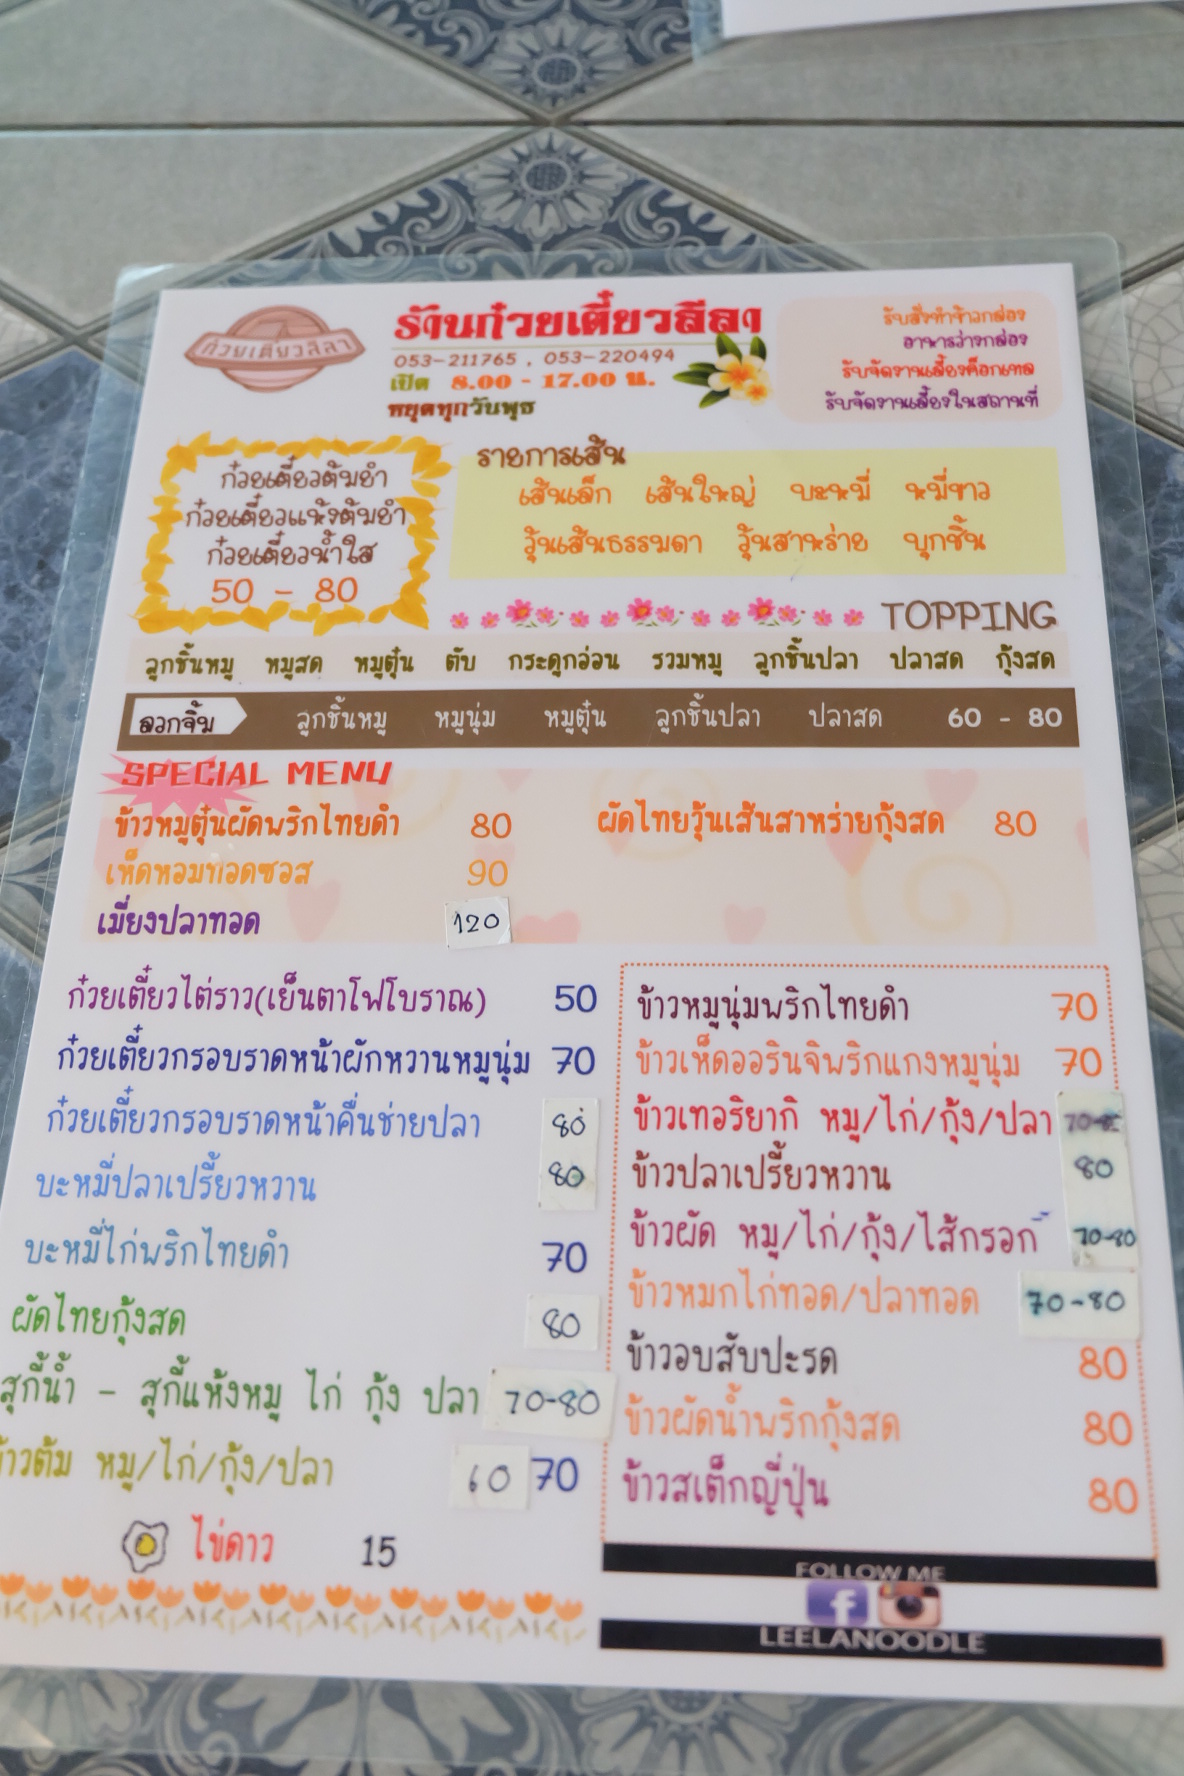 ก๋วยเตี๋ยวลีลา
ร้านก๋วยเตี๋ยวลีลา
053-211765 , 053-220494
เปิด 8.00 - 17.00 น.
หยุดทุกวันพุธ
รับสั่งทำข้าวกล่อง
อาหารว่างกล่อง
รับจัดงานเลี้ยงค็อกเทล
รับจัดงานเลี้ยงในสถานที่
ก๋วยเตี๋ยวต้มยำ
ก๋วยเตี๋ยวแห้งต้มยำ
ก๋วยเตี๋ยวน้ำใส
50 - 80
รายการเส้น
เส้นเล็ก เส้นใหญ่ บะหมี่ หมี่ขาว
วุ้นเส้นธรรมดา วุ้นสาหร่าย บุกชิ้น
TOPPING
ลูกชิ้นหมู หมูสด หมูตุ๋น ตับ กระดูกอ่อน รวมหมู ลูกชิ้นปลา ปลาสด กุ้งสด
ลวกจิ้ม ลูกชิ้นหมู หมูนุ่ม หมูตุ๋น ลูกชิ้นปลา ปลาสด 60 - 80
SPECIAL MENU
ข้าวหมูตุ๋นผัดพริกไทยดำ 80 ผัดไทยวุ้นเส้นสาหร่ายกุ้งสด 80
เห็ดหอมทอดซอส 90
เมี่ยงปลาทอด 120
ก๋วยเตี๋ยวไต่ราว(เย็นตาโฟโบราณ) 50
ก๋วยเตี๋ยวกรอบราดหน้าผักหวานหมูนุ่ม 70
ก๋วยเตี๋ยวกรอบราดหน้าคื่นช่ายปลา 80
บะหมี่ปลาเปรี้ยวหวาน 80
บะหมี่ไก่พริกไทยดำ 70
ผัดไทยกุ้งสด 80
สุกี้น้ำ - สุกี้แห้งหมู ไก่ กุ้ง ปลา 70-80
ข้าวต้ม หมู/ไก่/กุ้ง/ปลา 60 70
ไข่ดาว 15
ข้าวหมูนุ่มพริกไทยดำ 70
ข้าวเห็ดออรินจิพริกแกงหมูนุ่ม 70
ข้าวเทอริยากิ หมู/ไก่/กุ้ง/ปลา
ข้าวปลาเปรี้ยวหวาน 80
ข้าวผัด หมู/ไก่/กุ้ง/ไส้กรอก 70-80
ข้าวหมกไก่ทอด/ปลาทอด 70-80
ข้าวอบสับปะรด 80
ข้าวผัดน้ำพริกกุ้งสด 80
ข้าวสเต็กญี่ปุ่น 80
FOLLOW ME
LEELANOODLE